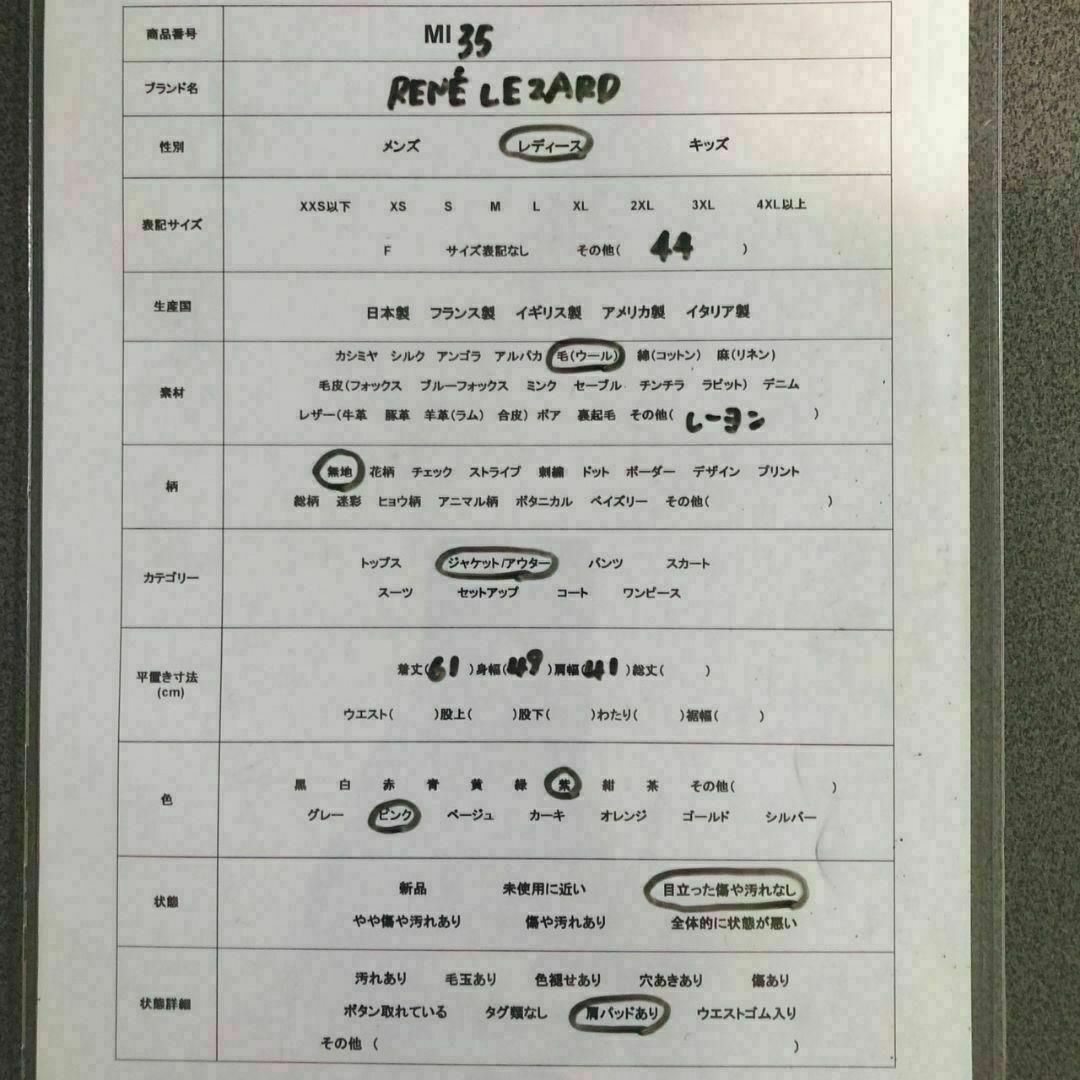 商品番号 MI 35
ブランド名 RENÉ LEZARD
性別 メンズ レディース キッズ
表記サイズ
XXS以下 XS S M L XL 2XL 3XL 4XL以上
F サイズ表記なし その他( 44 )
生産国 日本製 フランス製 イギリス製 アメリカ製 イタリア製
素材
カシミヤ シルク アンゴラ アルパカ 毛(ウール) 綿(コットン) 麻(リネン)
毛皮(フォックス ブルーフォックス ミンク セーブル チンチラ ラビット) デニム
レザー(牛革 豚革 羊革(ラム) 合皮) ボア 裏起毛 その他( レーヨン )
柄
無地 花柄 チェック ストライプ 刺繍 ドット ボーダー デザイン プリント
総柄 迷彩 ヒョウ柄 アニマル柄 ボタニカル ペイズリー その他( )
カテゴリー
トップス ジャケット/アウター パンツ スカート
スーツ セットアップ コート ワンピース
平置き寸法
(cm)
着丈(61)身幅(49)肩幅(41)総丈( )
ウエスト( )股上( )股下( )わたり( )裾幅( )
色
黒 白 赤 青 黄 緑 紫 紺 茶 その他( )
グレー ピンク ベージュ カーキ オレンジ ゴールド シルバー
状態
新品 未使用に近い 目立った傷や汚れなし
やや傷や汚れあり 傷や汚れあり 全体的に状態が悪い
状態詳細
汚れあり 毛玉あり 色褪せあり 穴あきあり 傷あり
ボタン取れている タグ類なし 肩パッドあり ウエストゴム入り
その他 ( )